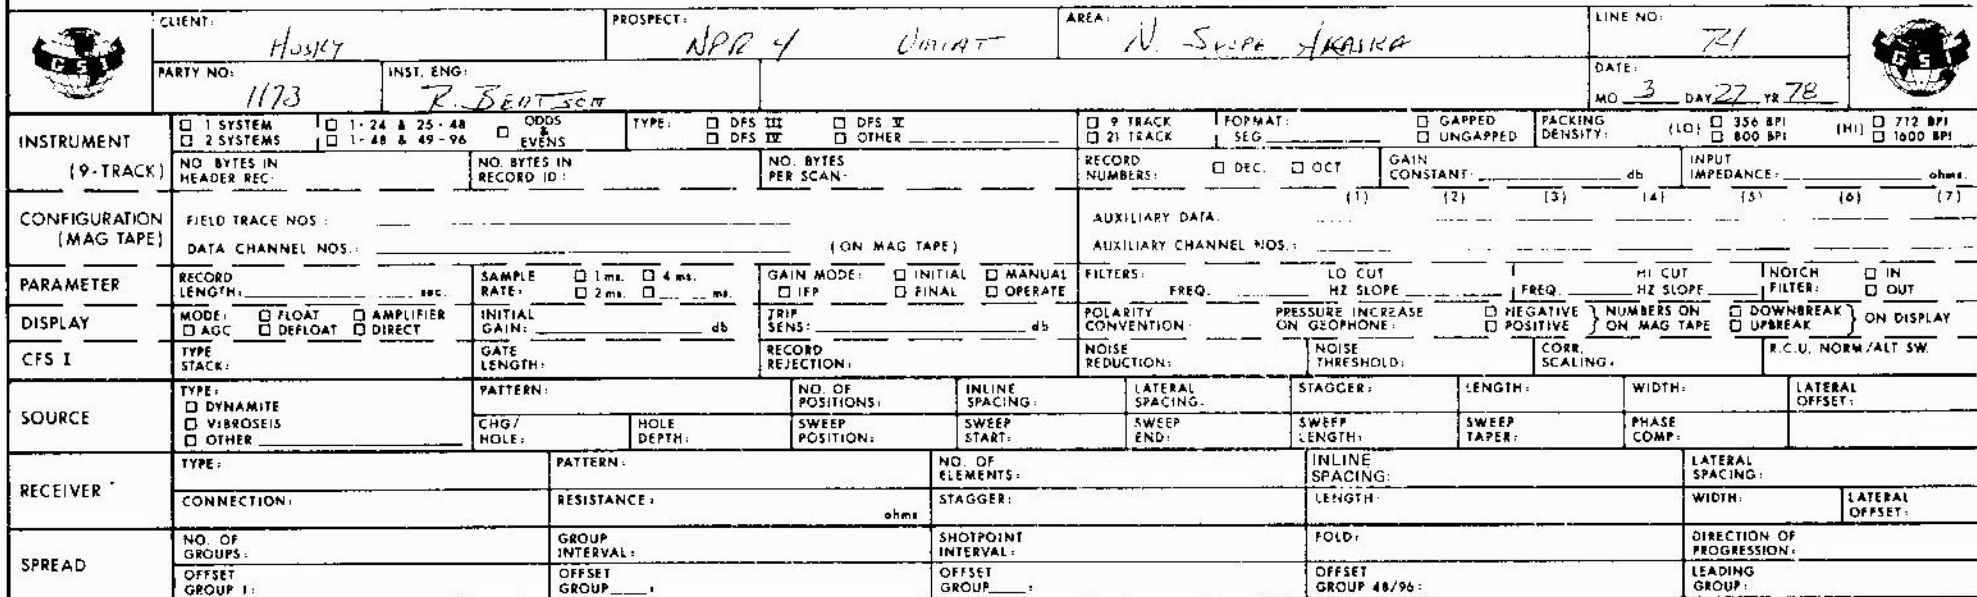 CLIENT: Husky PROSPECT: NPR 4 Umiat AREA: N. Slope Alaska LINE NO: 74
GSI GSI
PARTY NO: 1173 INST. ENG: R. Beatson DATE: MO 3 DAY 27 YR 78
INSTRUMENT (9-TRACK)
☐ 1 SYSTEM ☐ 1-24 & 25-48 ☐ ODDS & EVENS TYPE: ☐ DFS III ☐ DFS V ☐ 9 TRACK FORMAT: ☐ GAPPED PACKING DENSITY: (LO) ☐ 356 BPI (HI) ☐ 772 BPI
☐ 2 SYSTEMS ☐ 1-48 & 49-96 ☐ DFS IV ☐ OTHER ☐ 21 TRACK SEG ☐ UNGAPPED ☐ 800 BPI ☐ 1600 BPI
NO. BYTES IN HEADER REC: NO. BYTES IN RECORD ID: NO. BYTES PER SCAN: RECORD NUMBERS: ☐ DEC. ☐ OCT GAIN CONSTANT: db INPUT IMPEDANCE: ohms.
CONFIGURATION (MAG TAPE)
(1) (2) (3) (4) (5) (6) (7)
FIELD TRACE NOS: AUXILIARY DATA:
DATA CHANNEL NOS.: (ON MAG TAPE) AUXILIARY CHANNEL NOS.:
PARAMETER
RECORD LENGTH: sec. SAMPLE RATE: ☐ 1 ms. ☐ 4 ms. ☐ 2 ms. ☐ ms. GAIN MODE: ☐ INITIAL ☐ MANUAL ☐ IFP ☐ FINAL ☐ OPERATE FILTERS: FREQ. LO CUT HZ SLOPE FREQ. HI CUT HZ SLOPE NOTCH FILTER: ☐ IN ☐ OUT
DISPLAY
MODE: ☐ FLOAT ☐ AMPLIFIER ☐ AGC ☐ DEFLOAT ☐ DIRECT INITIAL GAIN: db TRIP SENS: db POLARITY CONVENTION: PRESSURE INCREASE ON GEOPHONE: ☐ NEGATIVE ☐ POSITIVE } NUMBERS ON MAG TAPE ☐ DOWNBREAK ☐ UPBREAK } ON DISPLAY
CFS I TYPE STACK: GATE LENGTH: RECORD REJECTION: NOISE REDUCTION: NOISE THRESHOLD: CORR. SCALING: R.C.U. NORM/ALT SW.
SOURCE
TYPE: ☐ DYNAMITE ☐ VIBROSEIS ☐ OTHER
PATTERN: NO. OF POSITIONS: INLINE SPACING: LATERAL SPACING: STAGGER: LENGTH: WIDTH: LATERAL OFFSET:
CHG/HOLE: HOLE DEPTH: SWEEP POSITION: SWEEP START: SWEEP END: SWEEP LENGTH: SWEEP TAPER: PHASE COMP:
RECEIVER
TYPE: PATTERN: NO. OF ELEMENTS: INLINE SPACING: LATERAL SPACING:
CONNECTION: RESISTANCE: ohms STAGGER: LENGTH: WIDTH: LATERAL OFFSET:
SPREAD
NO. OF GROUPS: GROUP INTERVAL: SHOTPOINT INTERVAL: FOLD: DIRECTION OF PROGRESSION:
OFFSET GROUP 1: OFFSET GROUP : OFFSET GROUP : OFFSET GROUP 48/96: LEADING GROUP: